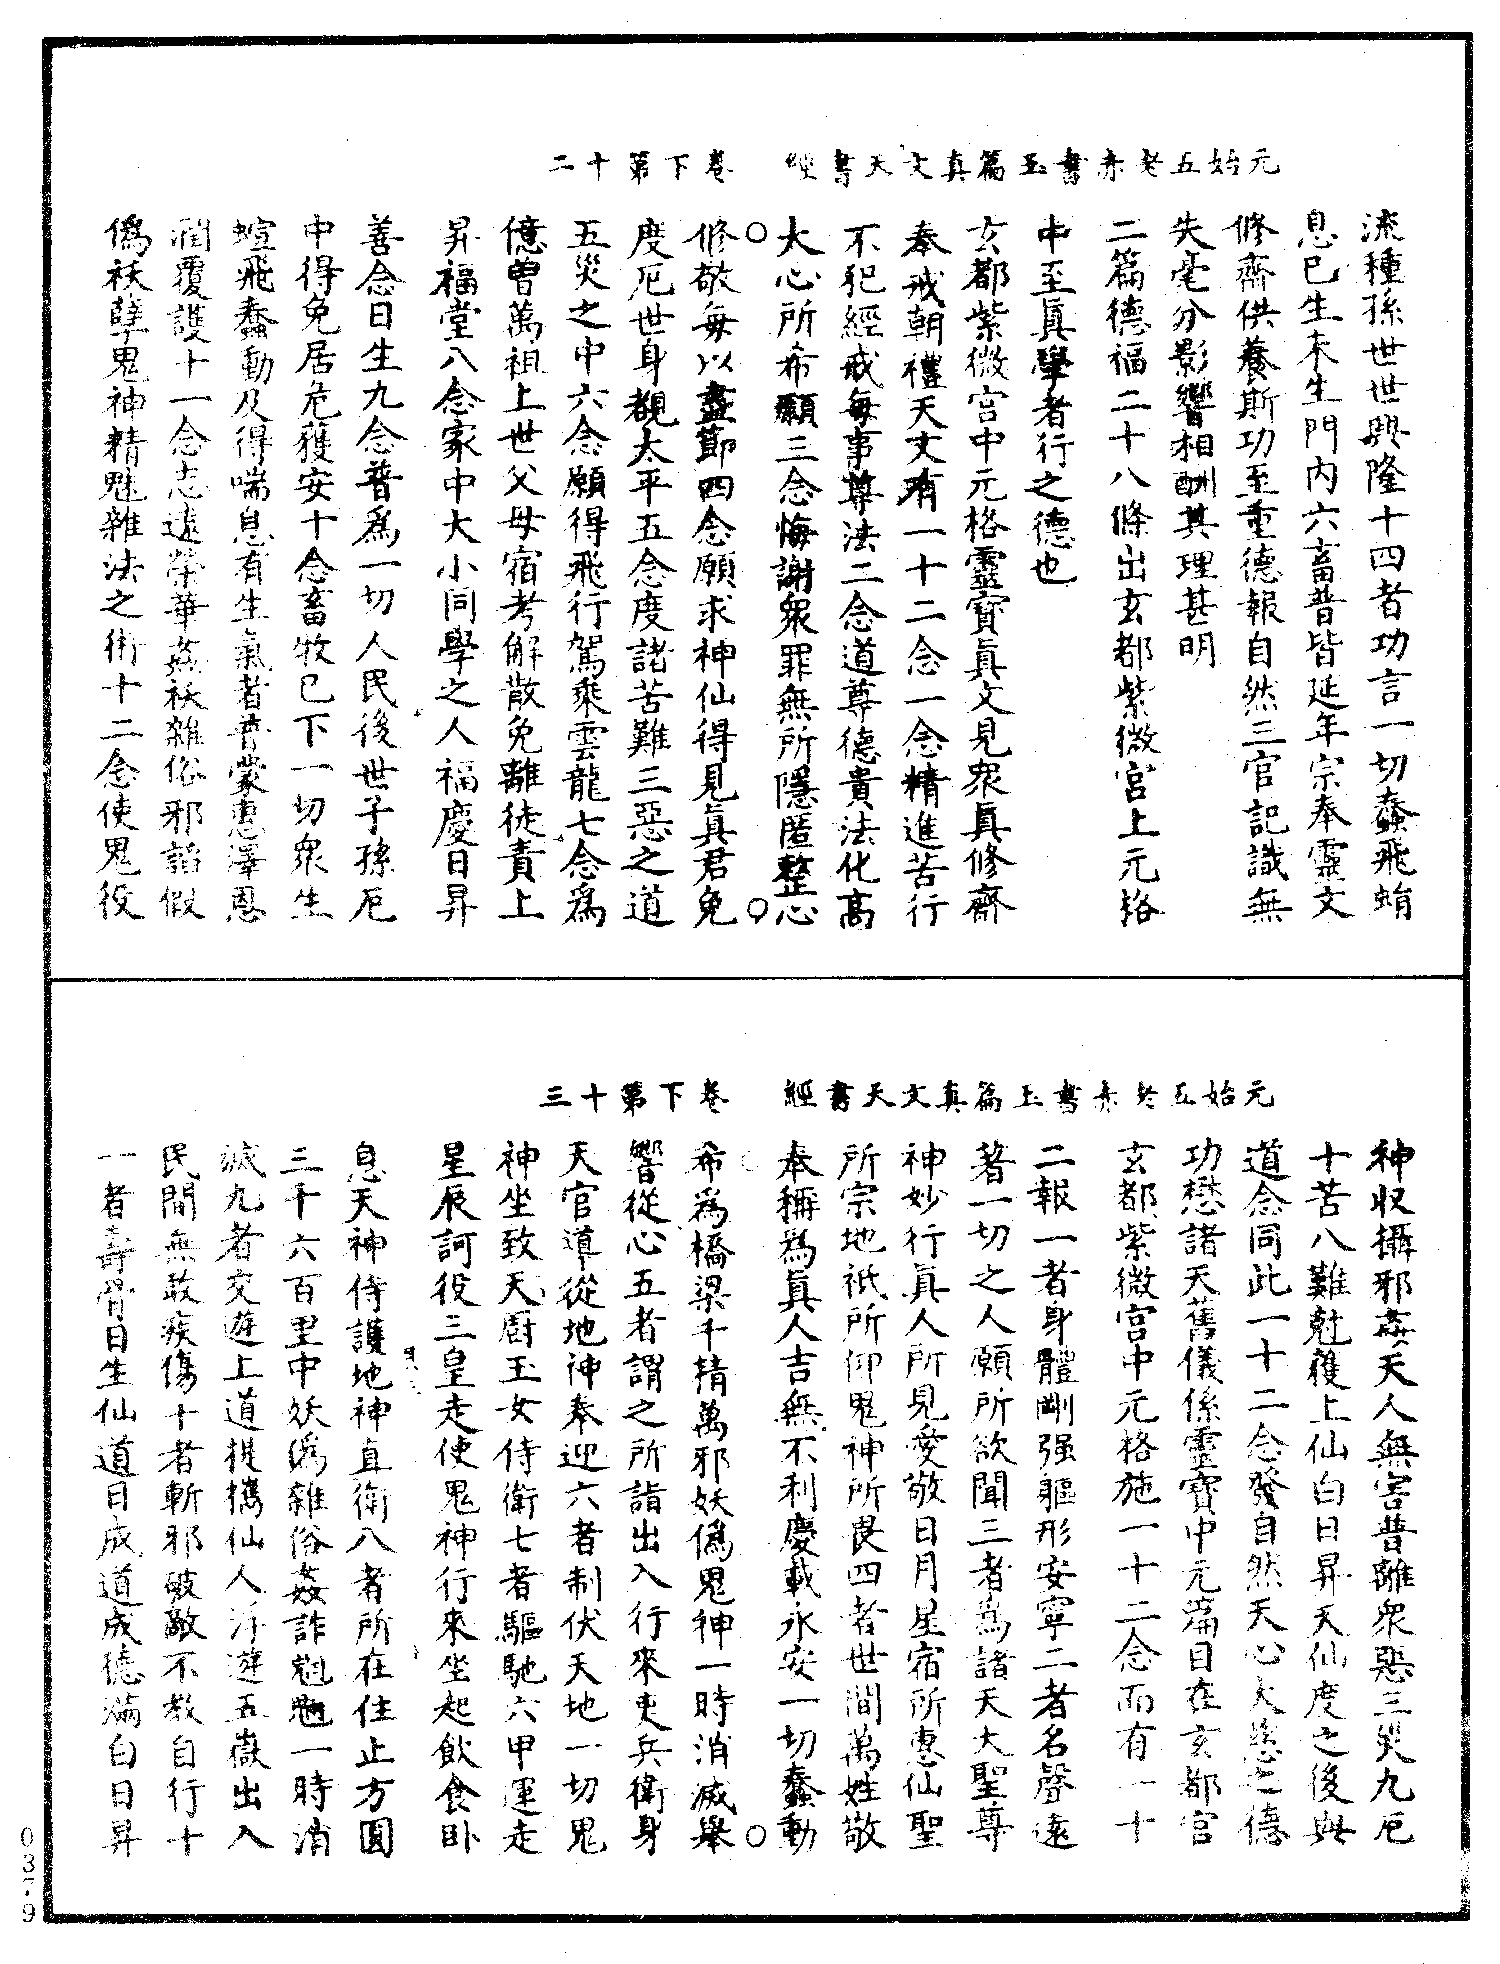 元始五老赤書玉篇真文天書經　卷下第十二
流種孫世世興隆十四者功言一切蠢飛蛸
息已生未生門內六畜普皆延年宗奉靈文
修齋供養斯功至重德報自然三官記識無
失毫分影響相酬其理甚明
二篇德福二十八條出玄都紫微宮上元格
中至真學者行之德也
玄都紫微宮中元格靈寶真文見衆真修齋
奉戒朝禮天文有一十二念一念精進苦行
不犯經戒每事尊法二念道尊德貴法化高
大心所希願三念悔謝衆罪無所隱匿整心
修敬每以盡節四念願求神仙得見真君免
度厄世身覩太平五念度諸苦難三惡之道
五災之中六念願得飛行駕乘雲龍七念爲
億曾萬祖上世父母宿考解散免離徒責上
昇福堂八念家中大小同學之人福慶日昇
善念日生九念普爲一切人民後世子孫厄
中得免居危獲安十念畜牧已下一切衆生
蝖飛蠢動及得喘息有生氣者普蒙惠澤恩
潤覆護十一念志遠榮華姦祅雜俗邪諂假
僞祅孽鬼神精魅雜法之術十二念使鬼役
元始五老赤書玉篇真文天書經　卷下第十三
神收攝邪姦天人無害普離衆惡三災九厄
十苦八難尅獲上仙白日昇天仙度之後與
道念同此一十二念發自然天心大慈之德
功懋諸天舊儀係靈寶中元篇目在玄都宮
玄都紫微宮中元格施一十二念而有一十
二報一者身體剛强軀形安寧二者名聲遠
著一切之人願所欲聞三者爲諸天大聖尊
神妙行真人所見愛敬日月星宿所惠仙聖
所宗地祇所仰鬼神所畏四者世間萬姓敬
奉稱爲真人吉無不利慶載永安一切蠢動
希爲橋梁千精萬邪妖僞鬼神一時消滅舉
響從心五者謂之所詣出入行來吏兵衛身
天官導從地神奉迎六者制伏天地一切鬼
神坐致天廚玉女侍衛七者驅馳六甲運走
星辰訶役三皇走使鬼神行來坐起飲食卧
息天神侍護地神直衛八者所在住止方圓
三千六百里中妖僞雜俗姦詐魁魋一時消
滅九者交遊上道提携仙人浮遊五嶽出入
民間無敢疾傷十者斬邪破敵不教自行十
一者壽骨日生仙道日成道成德滿白日昇
037-9